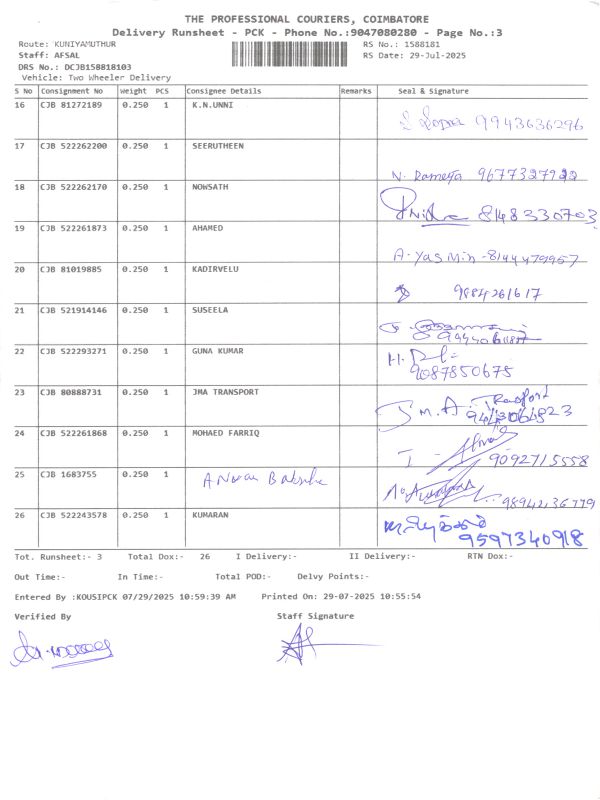 THE PROFESSIONAL COURIERS, COIMBATORE
Delivery Runsheet - PCK - Phone No.:9047080280 - Page No.:3
Route: KUNIYAMUTHUR RS No.: 1588181
Staff: AFSAL RS Date: 29-Jul-2025
DRS No.: DCJB158818103
Vehicle: Two Wheeler Delivery
S No Consignment No Weight PCS Consignee Details Remarks Seal & Signature
16 CJB 81272189 0.250 1 K.N.UNNI
9943636296
17 CJB 522262200 0.250 1 SEERUTHEEN
N. Rameya
18 CJB 522262170 0.250 1 NOWSATH
8148330703
19 CJB 522261873 0.250 1 AHAMED
A. Yasmin - 8144479957
20 CJB 81019885 0.250 1 KADIRVELU
9884261617
21 CJB 521914146 0.250 1 SUSEELA
22 CJB 522293271 0.250 1 GUNA KUMAR
9087850675
23 CJB 80888731 0.250 1 JMA TRANSPORT
J M.A. Transport
24 CJB 522261868 0.250 1 MOHAED FARRIQ
9092715558
25 CJB 1683755 0.250 1
9894236779
26 CJB 522243578 0.250 1 KUMARAN
9597340918
Tot. Runsheet:- 3 Total Dox:- 26 I Delivery:- II Delivery:- RTN Dox:-
Out Time:- In Time:- Total POD:- Delvy Points:-
Entered By :KOUSIPCK 07/29/2025 10:59:39 AM Printed On: 29-07-2025 10:55:54
Verified By Staff Signature